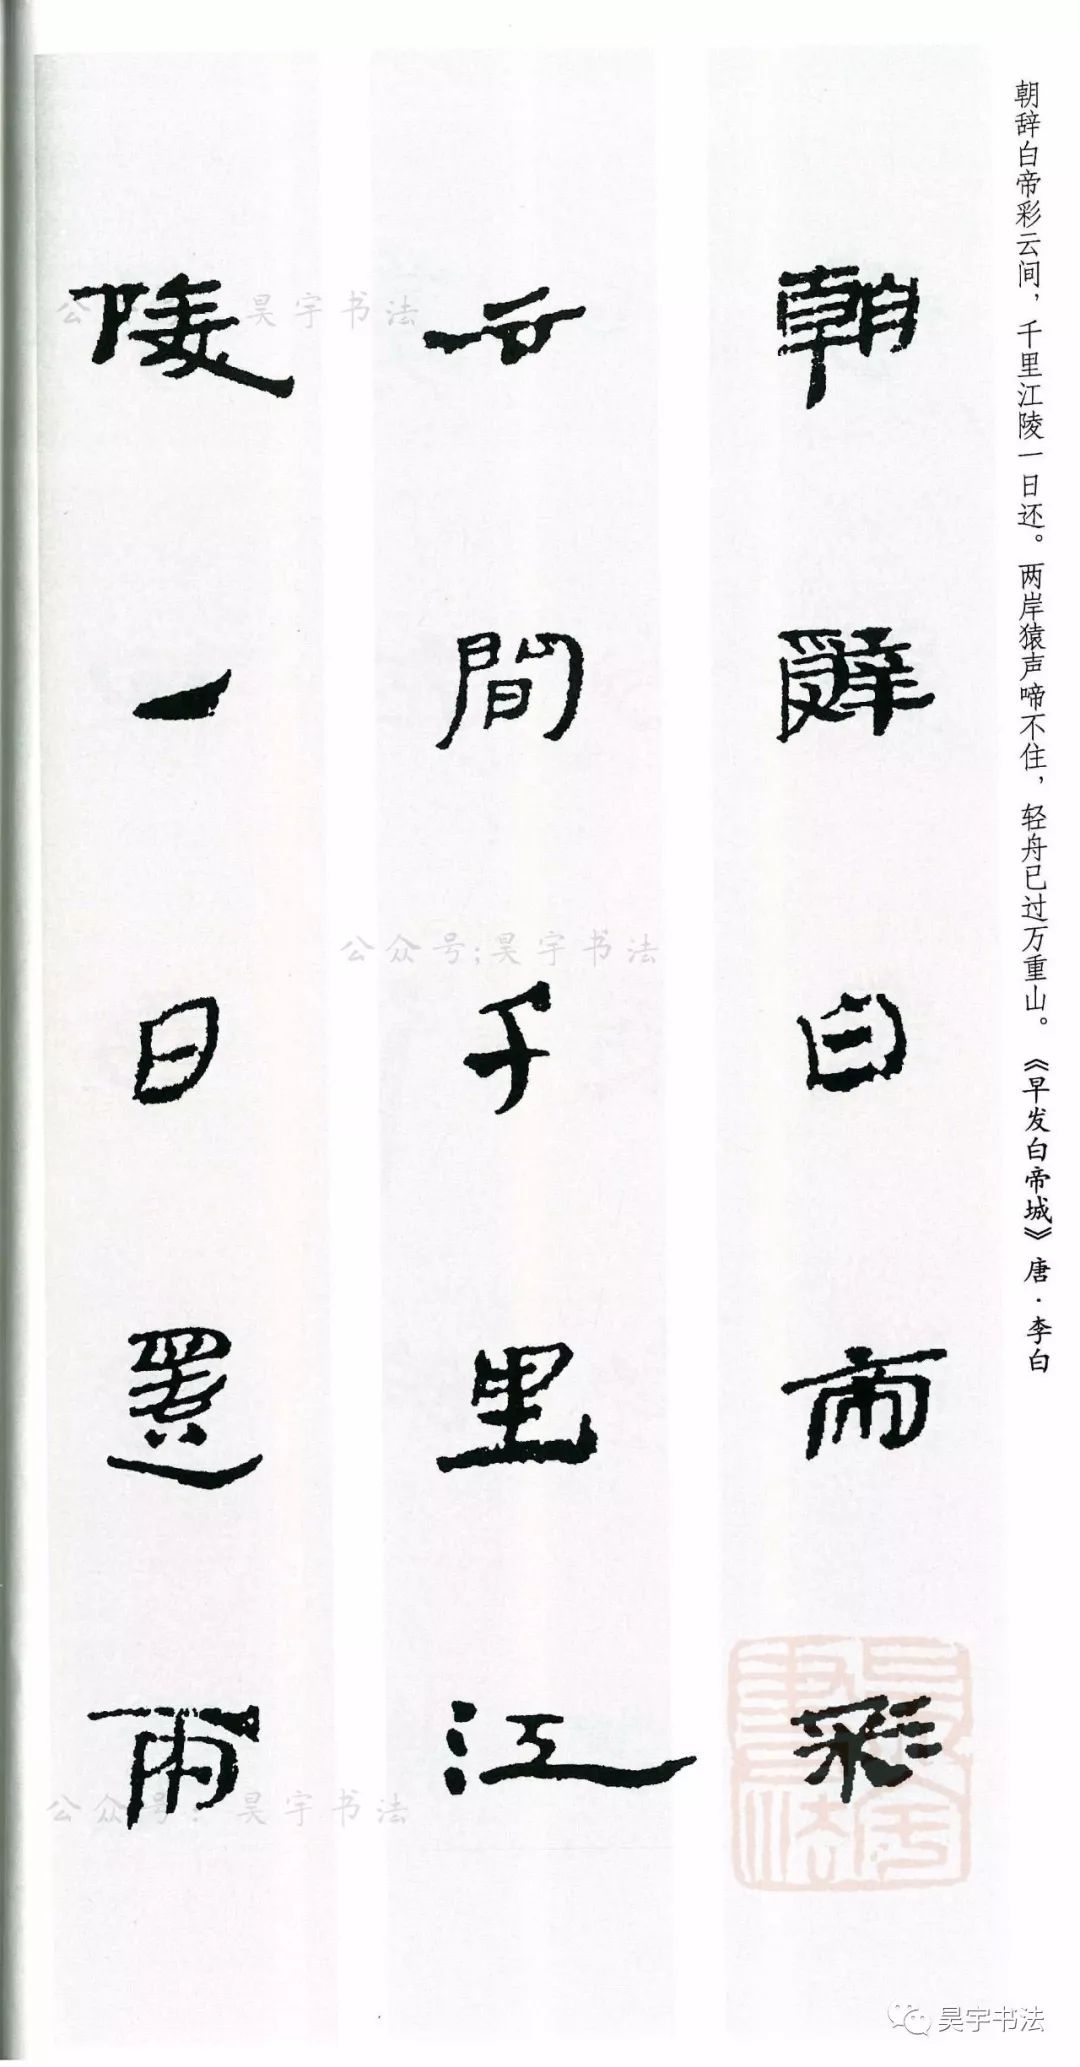 朝辞白帝彩云间，千里江陵一日还。两岸猿声啼不住，轻舟已过万重山。《早发白帝城》唐·李白
朝辭白帝彩
云間千里江
陵一日還兩
公众号：昊宇书法
公众号；昊宇书法
公众号：昊宇书法
昊宇書法
昊宇书法